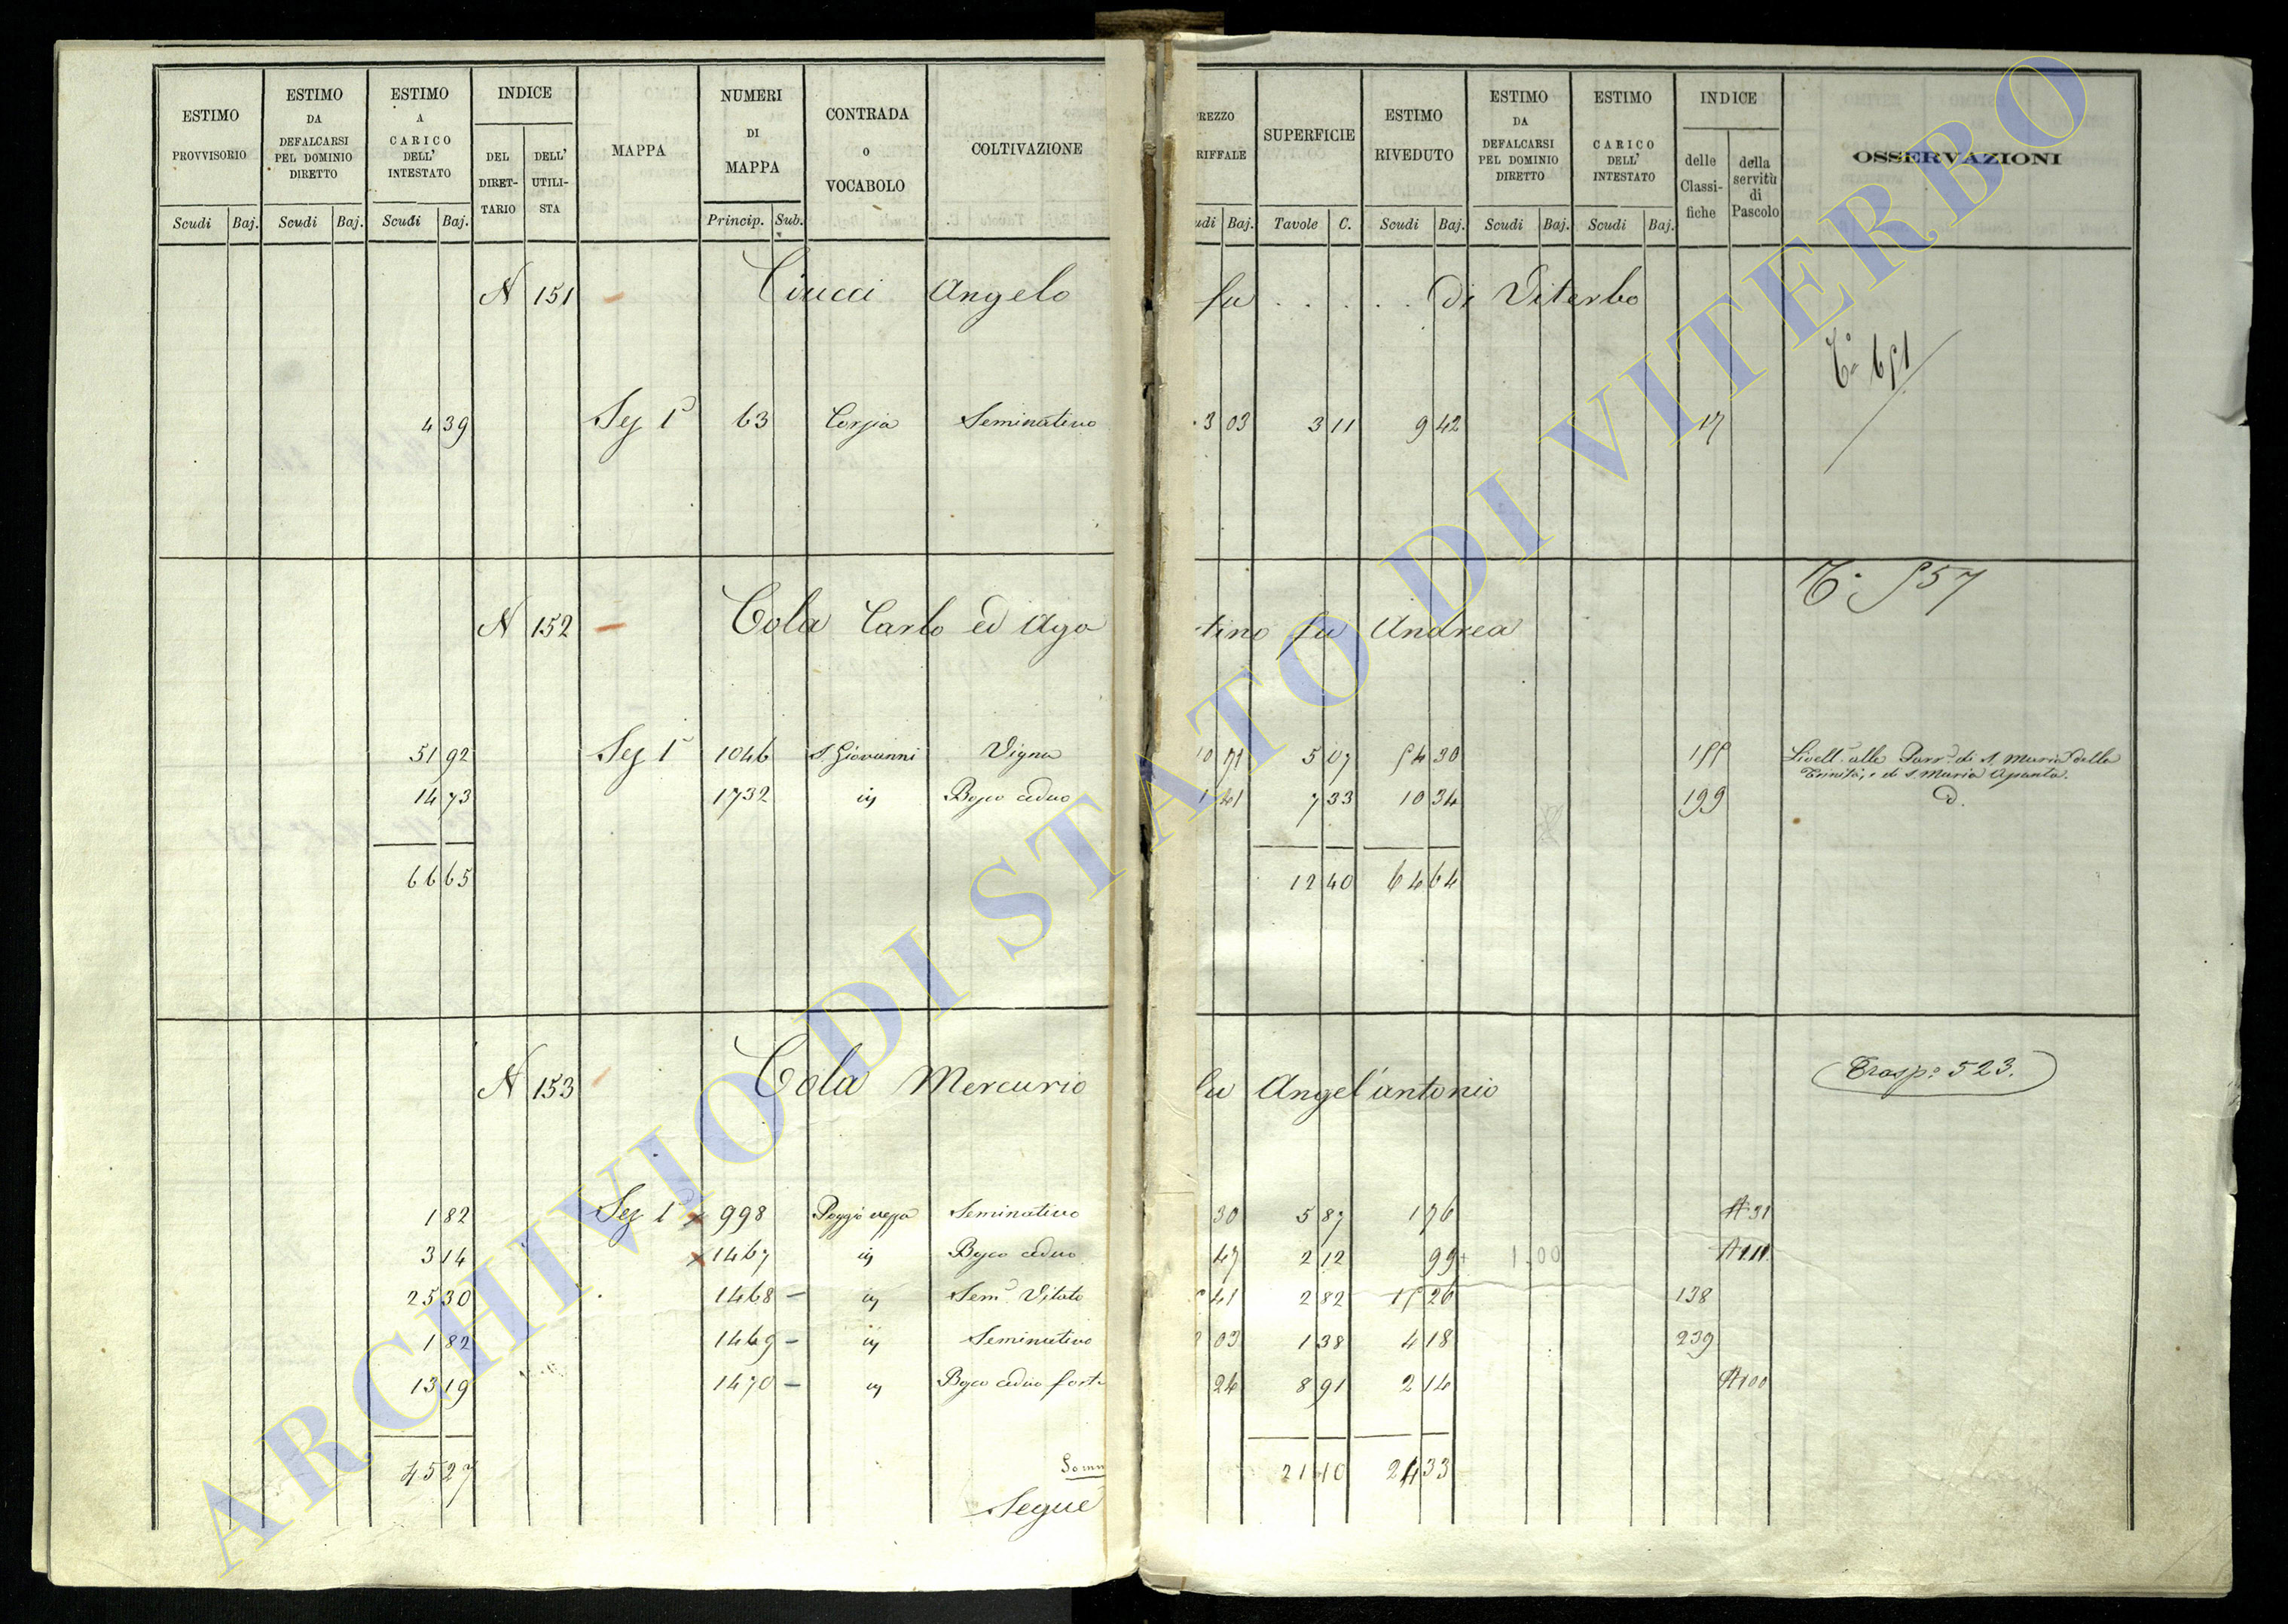 ESTIMO PROVVISORIO
ESTIMO DA DEFALCARSI PEL DOMINIO DIRETTO
ESTIMO A CARICO DELL' INTESTATO
INDICE
DEL DIRET-TARIO
DELL' UTILI-STA
MAPPA
NUMERI DI MAPPA
CONTRADA O VOCABOLO
COLTIVAZIONE
REZZO RIFFALE
SUPERFICIE
ESTIMO RIVEDUTO
ESTIMO DA DEFALCARSI PEL DOMINIO DIRETTO
ESTIMO CARICO DELL' INTESTATO
INDICE
delle Classi-fiche
della servitù di Pascolo
OSSERVAZIONI
Scudi Baj. Scudi Baj. Scudi Baj. Princip. Sub. udi Baj. Tavole C. Scudi Baj. Scudi Baj. Scudi Baj.
N 151 Ciucci Angelo fu . . . . . di Viterbo
4 39 Sez 1a 63 Seminativo 3 03 3 11 9 42 17
N 152 Cola Carlo ed Ago tino fu Andrea
51 92 Sez 1a 1046 S. Giovanni Vigna 5 07
Livell. alla Parr. di S. Maria della
Trinità, e di S. Maria
14 73 1732 Bosco ceduo 1 41 7 33 10 34 199
66 65 12 40 64 64
N 153 Cola Mercurio fu Angel'antonio
Trasp.o 523.
1 82 Sez 1a 998 Seminativo 30 5 87 1 76 A 31
3 14 1467 Bosco ceduo 47 2 12 99 1.00
25 30 1468 Sem.o Vitato 41 2 82 138
1 82 1469 Seminativo 03 1 38 4 18 239
13 19 1470 Bosco ceduo forte 24 8 91 2 14 A 100
45 27 Somm 21 10 24 33
Segue
ARCHIVIO DI STATO DI VITERBO